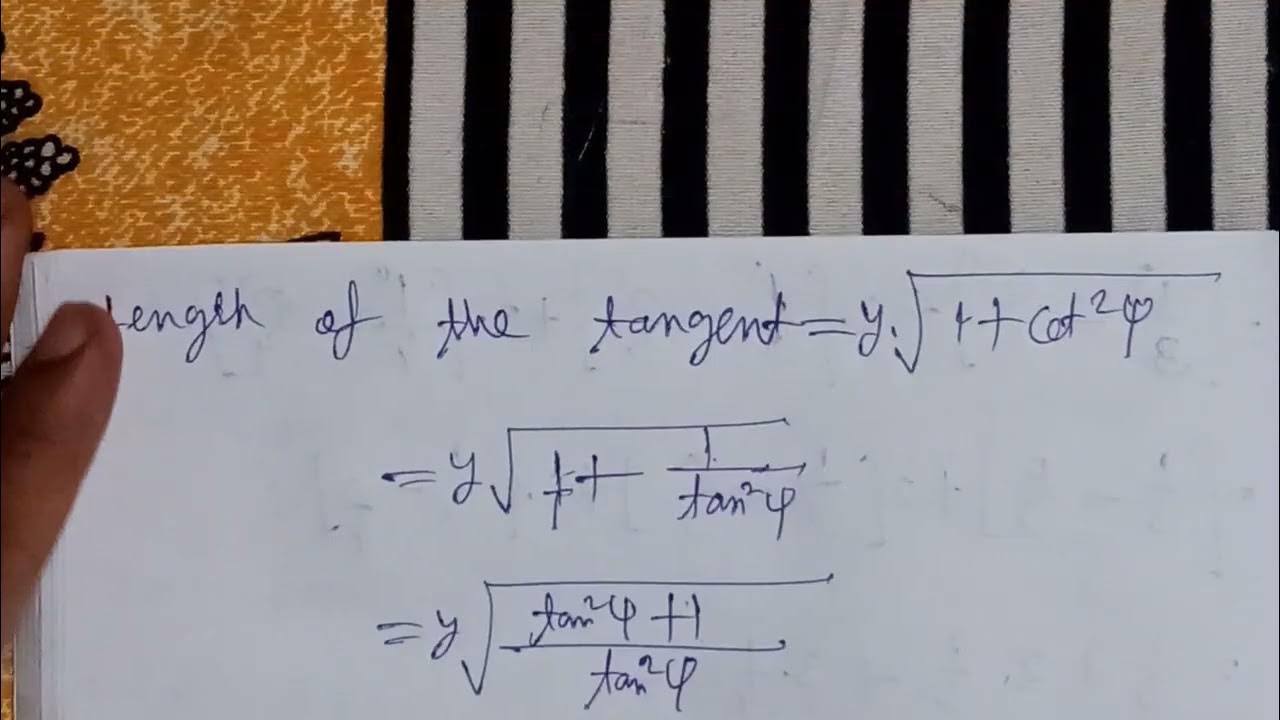 Length of the tangent = y.√(1+cot²ψ)
= y√(1+ 1/tan²ψ)
= y√((tan²ψ +1)/tan²ψ)